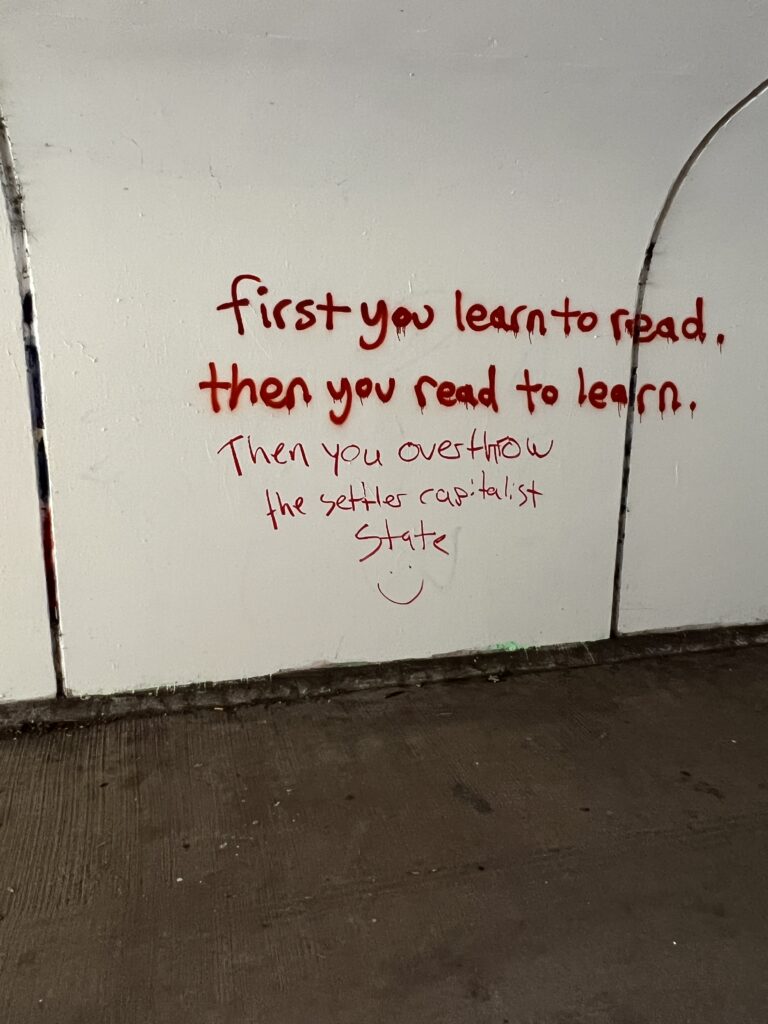 first you learn to read.
then you read to learn.
Then you overthrow
the settler capitalist
State